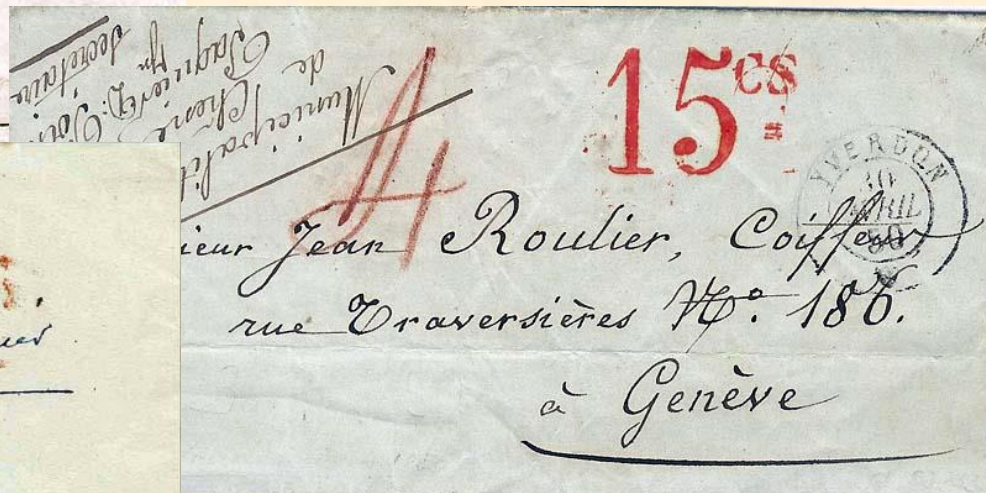 Municipalité
de Chêne
Paquier
Secrétaire
15cs
YVERDON
AVRIL
50
4
ieur Jean Roulier, Coiffeur
rue Traversières No. 186.
à Genève